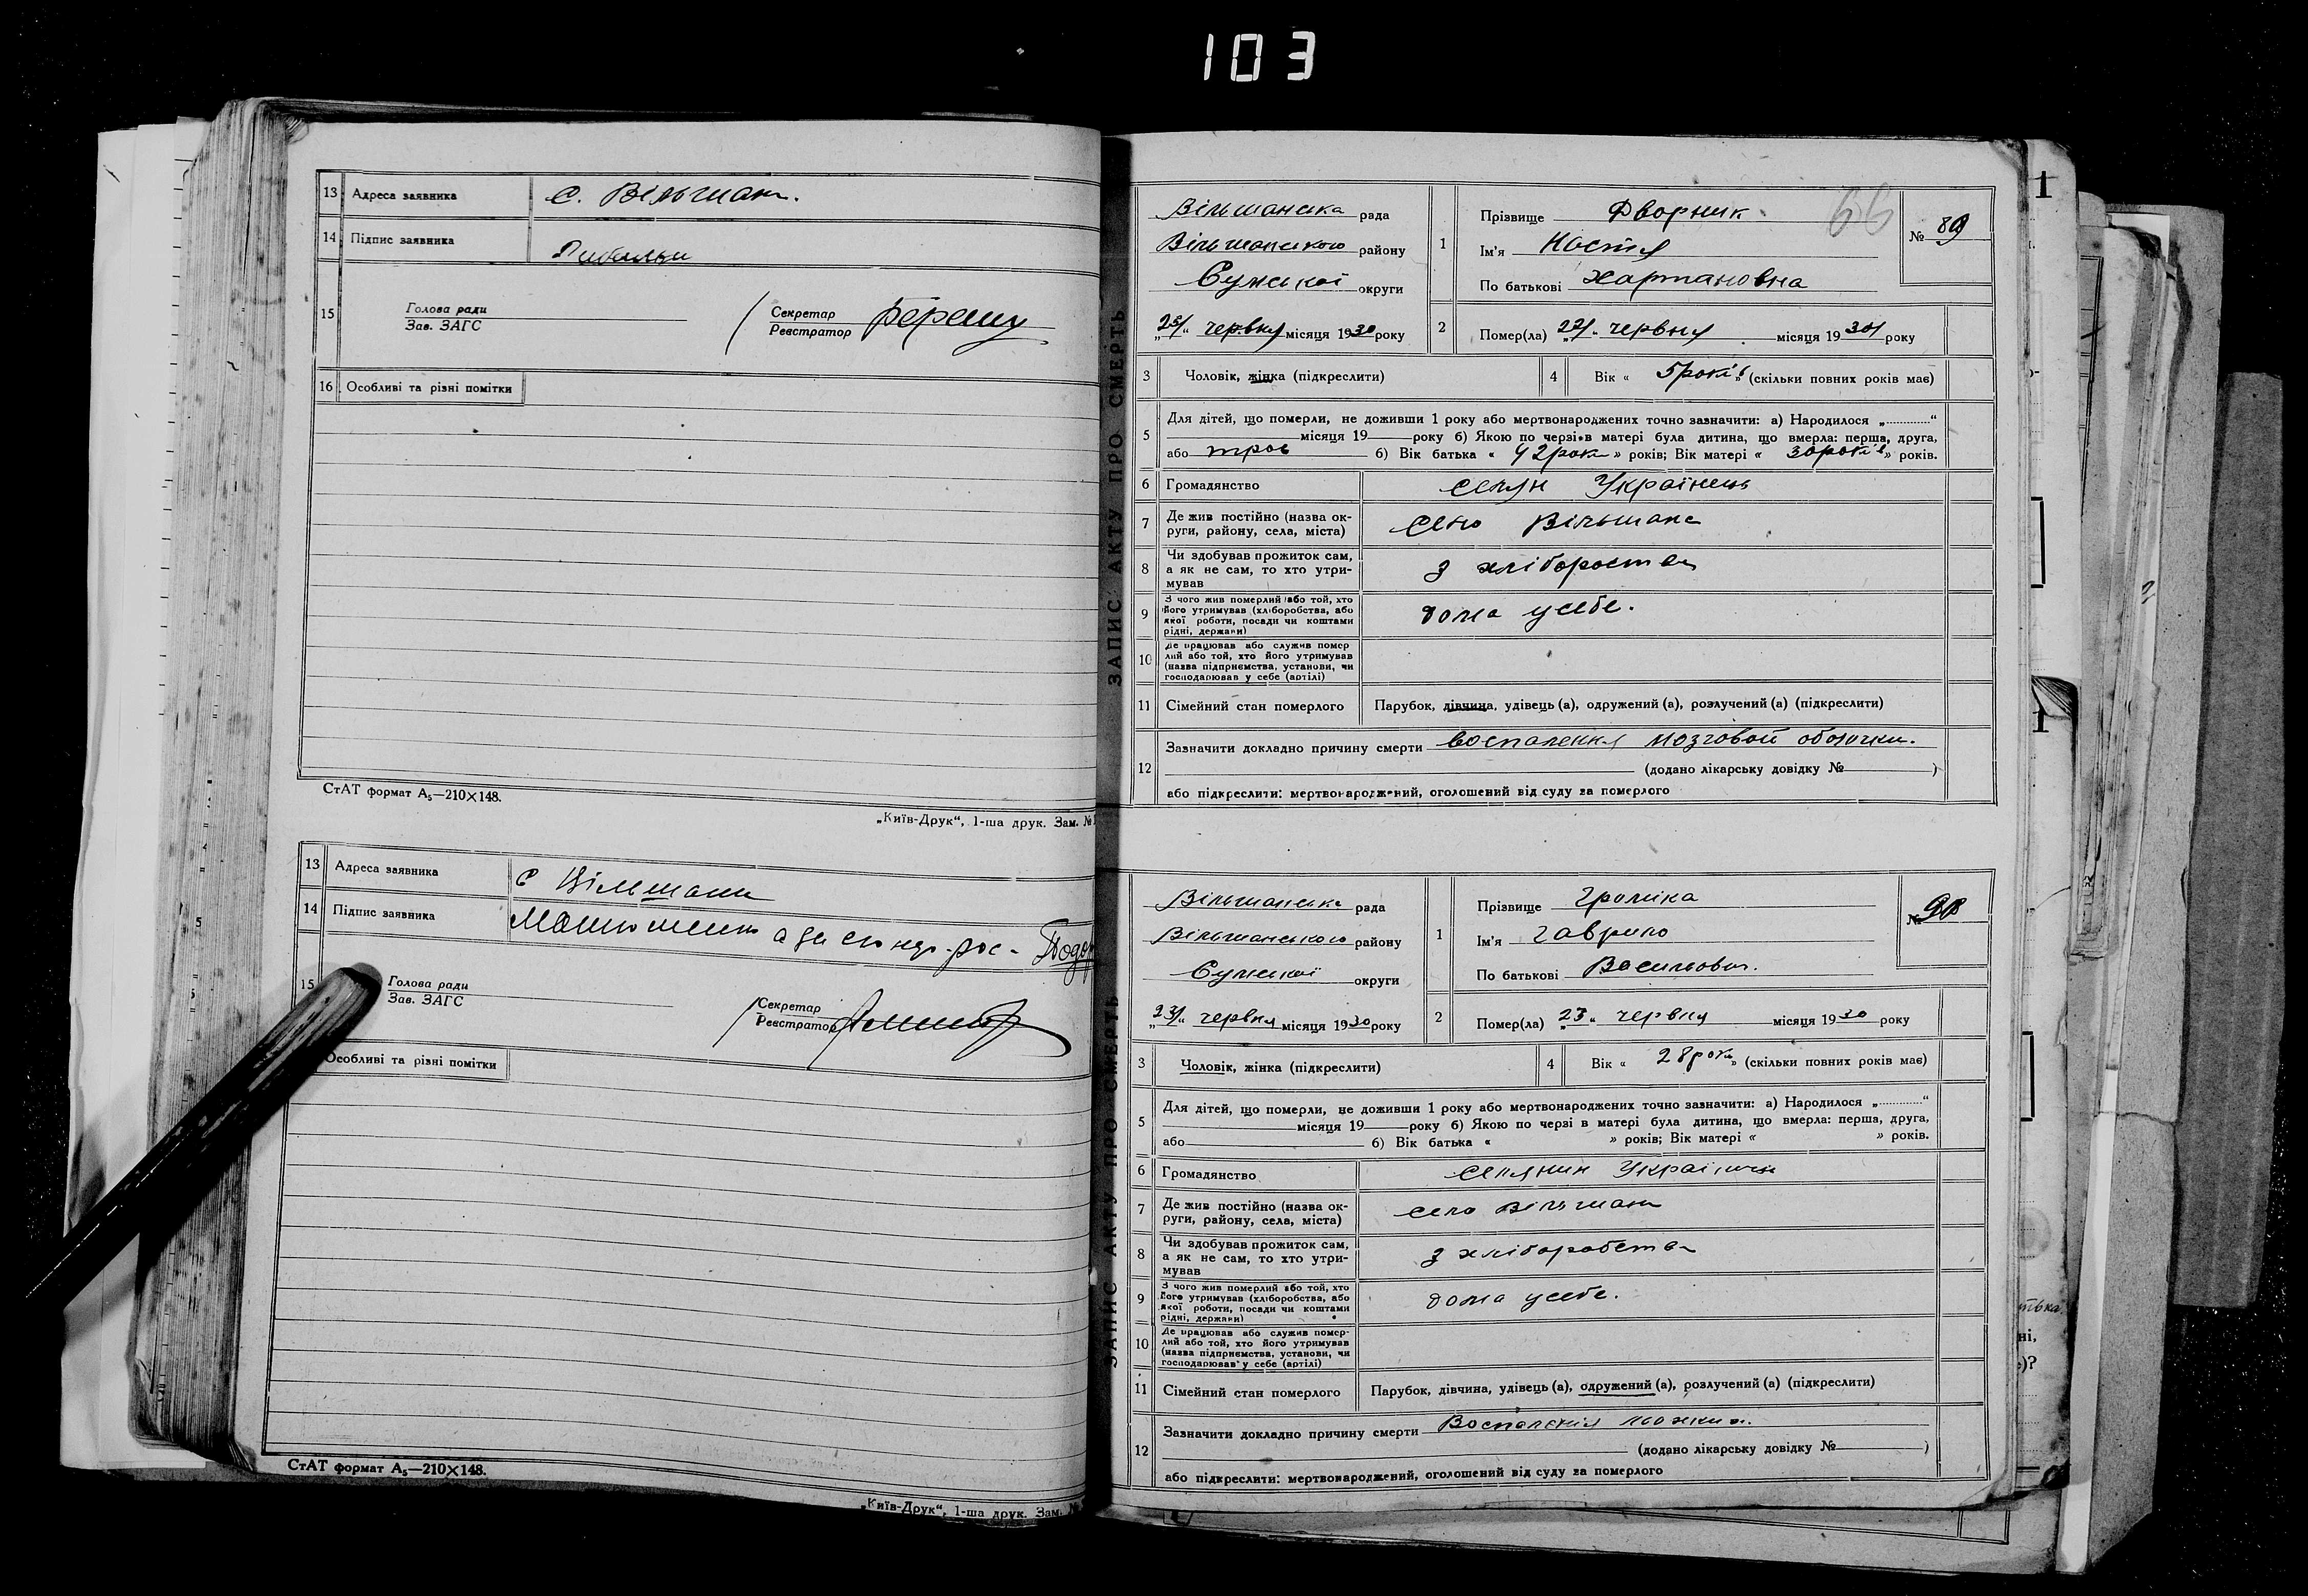 103
13 Адреса заявника с. Вільшани.
14 Підпис заявника
15 Голова ради
Зав. ЗАГС
Секретар
Реєстратор
16 Особливі та різні помітки
СтАТ формат А₅—210×148.
„Київ-Друк“, 1-ша друк. Зам. №
13 Адреса заявника с Вільшани
14 Підпис заявника
15 Голова ради
Зав. ЗАГС
Секретар
Реєстратор
Особливі та різні помітки
СтАТ формат А₅—210×148.
„Київ-Друк“, 1-ша друк. Зам.
ЗАПИС АКТУ ПРО СМЕРТЬ
Вільшанська рада
Вільшанського району
Сумської округи
червня місяця 1930 року
1 Прізвище Дворник
66
№ 89
Ім'я Костя
По батькові
2 Помер(ла) 22 червня місяця 1930 року
3 Чоловік, жінка (підкреслити)
4 Вік « 5 років » (скільки повних років має)
5 Для дітей, що померли, не доживши 1 року або мертвонароджених точно зазначити: а) Народилося „............“
місяця 19 року б) Якою по черзі в матері була дитина, що вмерла: перша, друга,
або троє б) Вік батька « 42 рок » років; Вік матері « 30 років » років.
6 Громадянство селян Українець
7 Де жив постійно (назва округи, району, села, міста) село Вільшана
8 Чи здобував прожиток сам, а як не сам, то хто утримував з
9 З чого жив померлий або той, хто його утримував (хліборобства, або якої роботи, посади чи коштами рідні, держави) дома у себе.
10 Де працював або служив померлий або той, хто його утримував (назва підприємства, установи, чи господарював у себе (артілі)
11 Сімейний стан померлого Парубок, дівчина, удівець (а), одружений (а), розлучений (а) (підкреслити)
12 Зазначити докладно причину смерти воспаления мозговой оболочки.
(додано лікарську довідку № )
або підкреслити: мертвонароджений, оголошений від суду за померлого
ЗАПИС АКТУ ПРО СМЕРТЬ
Вільшанська рада
Вільшанського району
Сумської округи
„23“ червня місяця 1930 року
1 Прізвище Громіка
№ 90
Ім'я Гаврило
По батькові Васильович.
2 Помер(ла) „23“ червня місяця 1930 року
3 Чоловік, жінка (підкреслити)
4 Вік « 28 рок » (скільки повних років має)
5 Для дітей, що померли, не доживши 1 року або мертвонароджених точно зазначити: а) Народилося „............“
місяця 19 року б) Якою по черзі в матері була дитина, що вмерла: перша, друга,
або б) Вік батька « » років; Вік матері « » років.
6 Громадянство селянин Українець
7 Де жив постійно (назва округи, району, села, міста) село Вільшани
8 Чи здобував прожиток сам, а як не сам, то хто утримував з хліборобства
9 З чого жив померлий або той, хто його утримував (хліборобства, або якої роботи, посади чи коштами рідні, держави) дома у себе.
10 Де працював або служив померлий або той, хто його утримував (назва підприємства, установи, чи господарював у себе (артілі)
11 Сімейний стан померлого Парубок, дівчина, удівець (а), одружений (а), розлучений (а) (підкреслити)
12 Зазначити докладно причину смерти Воспаления
(додано лікарську довідку № )
або підкреслити: мертвонароджений, оголошений від суду за померлого